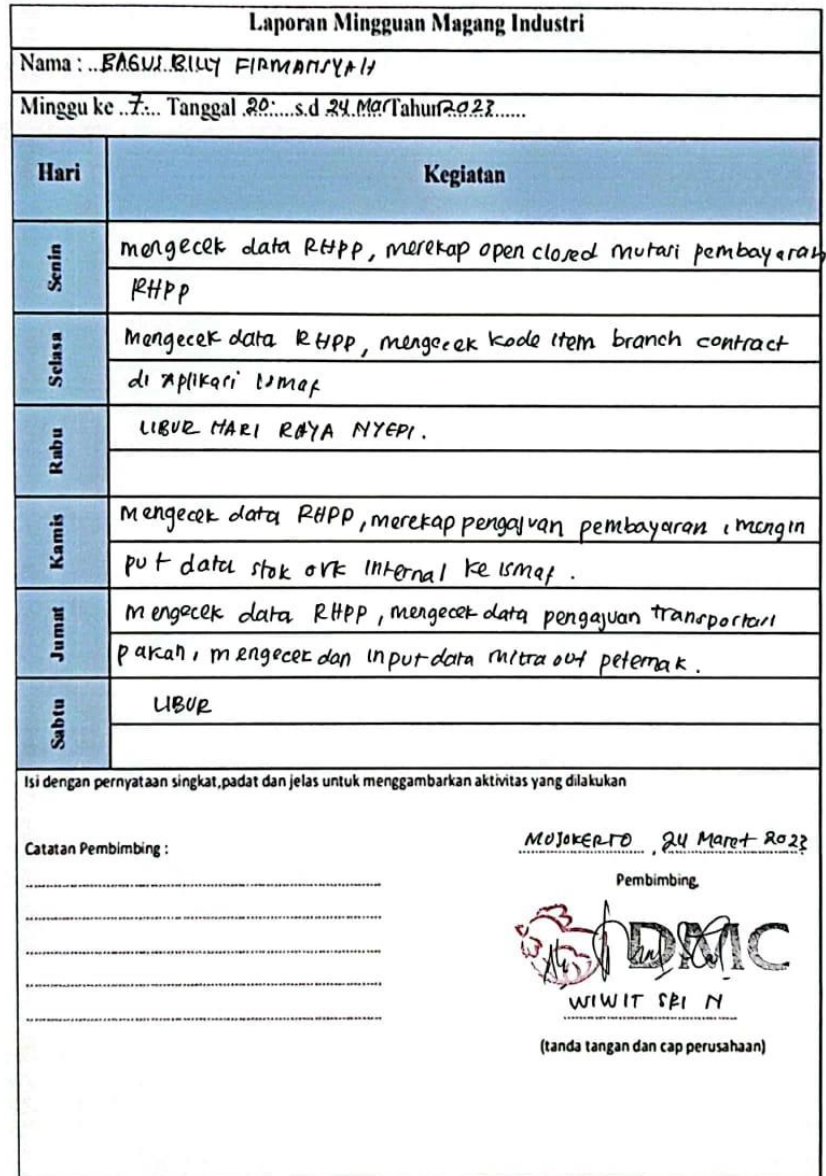 Laporan Mingguan Magang Industri
Nama : ..BAGUS BILLY FIRMANSYAH
Minggu ke ..7.... Tanggal .20....s.d 24 Mar Tahun 2023......
Hari Kegiatan
Senin
mengecek data RHPP, merekap open closed mutasi pembayaran
RHPP
Selasa
Mengecek data RHPP, mengecek kode item branch contract
di Aplikasi Ismaf
Rabu
LIBUR HARI RAYA NYEPI.
Kamis
Mengecek data RHPP, merekap pengajuan pembayaran , mengin
put data stok ovk internal ke ismaf .
Jumat
mengecek data RHPP, mengecek data pengajuan transportasi
pakan, mengecek dan input data mitra out peternak.
Sabtu
LIBUR
Isi dengan pernyataan singkat,padat dan jelas untuk menggambarkan aktivitas yang dilakukan
MOJOKERTO , 24 Maret 2023
Catatan Pembimbing :
Pembimbing,
DMC
WIWIT SRI N
(tanda tangan dan cap perusahaan)